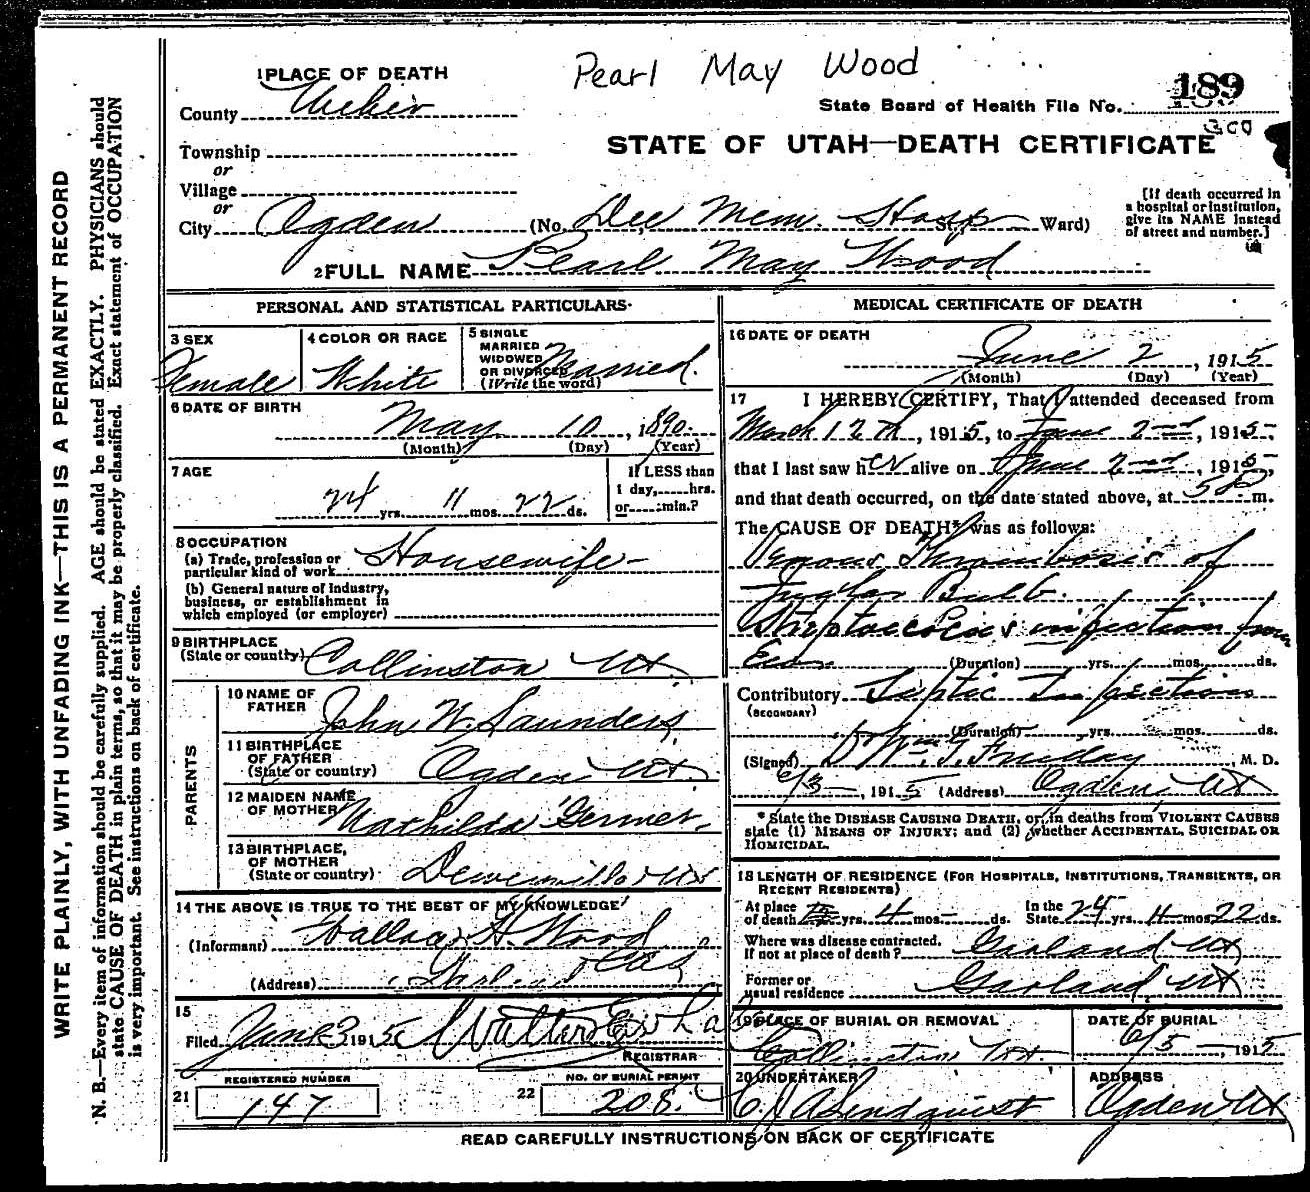 Pearl May Wood
189
1 PLACE OF DEATH
State Board of Health File No.
County Weber
STATE OF UTAH—DEATH CERTIFICATE
Township
or
Village
or
City Ogden (No. Dee Mem. Hosp St. Ward)
[If death occurred in
a hospital or institution,
give its NAME instead
of street and number.]
2 FULL NAME Pearl May Wood
PERSONAL AND STATISTICAL PARTICULARS
3 SEX
Female
4 COLOR OR RACE
White
5 SINGLE
MARRIED
WIDOWED
OR DIVORCED
(Write the word)
Married.
6 DATE OF BIRTH
May 10, 1890.
(Month) (Day) (Year)
7 AGE
24 yrs. 11 mos. 22 ds.
If LESS than
1 day, hrs.
or min.?
8 OCCUPATION
(a) Trade, profession or
particular kind of work Housewife
(b) General nature of industry,
business, or establishment in
which employed (or employer)
9 BIRTHPLACE
(State or country) Collinston Ut.
PARENTS
10 NAME OF
FATHER John W. Saunders
11 BIRTHPLACE
OF FATHER
(State or country) Ogden Ut.
12 MAIDEN NAME
OF MOTHER Mathilda Germer.
13 BIRTHPLACE,
OF MOTHER
(State or country) Deweyville Ut
14 THE ABOVE IS TRUE TO THE BEST OF MY KNOWLEDGE
(Informant) Wallace H. Wood
(Address) Garland Ut
15
Filed June 3 1915
REGISTRAR
REGISTERED NUMBER
21 147
NO. OF BURIAL PERMIT
22 208.
MEDICAL CERTIFICATE OF DEATH
16 DATE OF DEATH
June 2, 1915
(Month) (Day) (Year)
17 I HEREBY CERTIFY, That I attended deceased from
March 12th, 1915, to June 2nd, 1915,
that I last saw her alive on June 2nd, 1915,
and that death occurred, on the date stated above, at 5 P m.
The CAUSE OF DEATH* was as follows:
Venous Thrombosis of
Jugular Bulb.
Streptococcus infection from
Ear. (Duration) yrs. mos. ds.
Contributory Septic Infection
(SECONDARY)
(Duration) yrs. mos. ds.
(Signed) Dr. Wm. , M. D.
6/3, 1915 (Address) Ogden, Ut
* State the DISEASE CAUSING DEATH, or, in deaths from VIOLENT CAUSES
state (1) MEANS OF INJURY; and (2) whether ACCIDENTAL, SUICIDAL OR
HOMICIDAL.
18 LENGTH OF RESIDENCE (FOR HOSPITALS, INSTITUTIONS, TRANSIENTS, OR
RECENT RESIDENTS)
At place In the
of death yrs. 4 mos. ds. State 24 yrs. 11 mos. 22 ds.
Where was disease contracted.
If not at place of death? Garland Ut
Former or
usual residence Garland Ut
19 PLACE OF BURIAL OR REMOVAL
Collinston Ut.
DATE OF BURIAL
6/5, 1915
20 UNDERTAKER
C. J. A. Lindquist
ADDRESS
Ogden Ut
READ CAREFULLY INSTRUCTIONS ON BACK OF CERTIFICATE
WRITE PLAINLY, WITH UNFADING INK—THIS IS A PERMANENT RECORD
N. B.—Every item of information should be carefully supplied. AGE should be stated EXACTLY. PHYSICIANS should
state CAUSE OF DEATH in plain terms, so that it may be properly classified. Exact statement of OCCUPATION
is very important. See instructions on back of certificate.